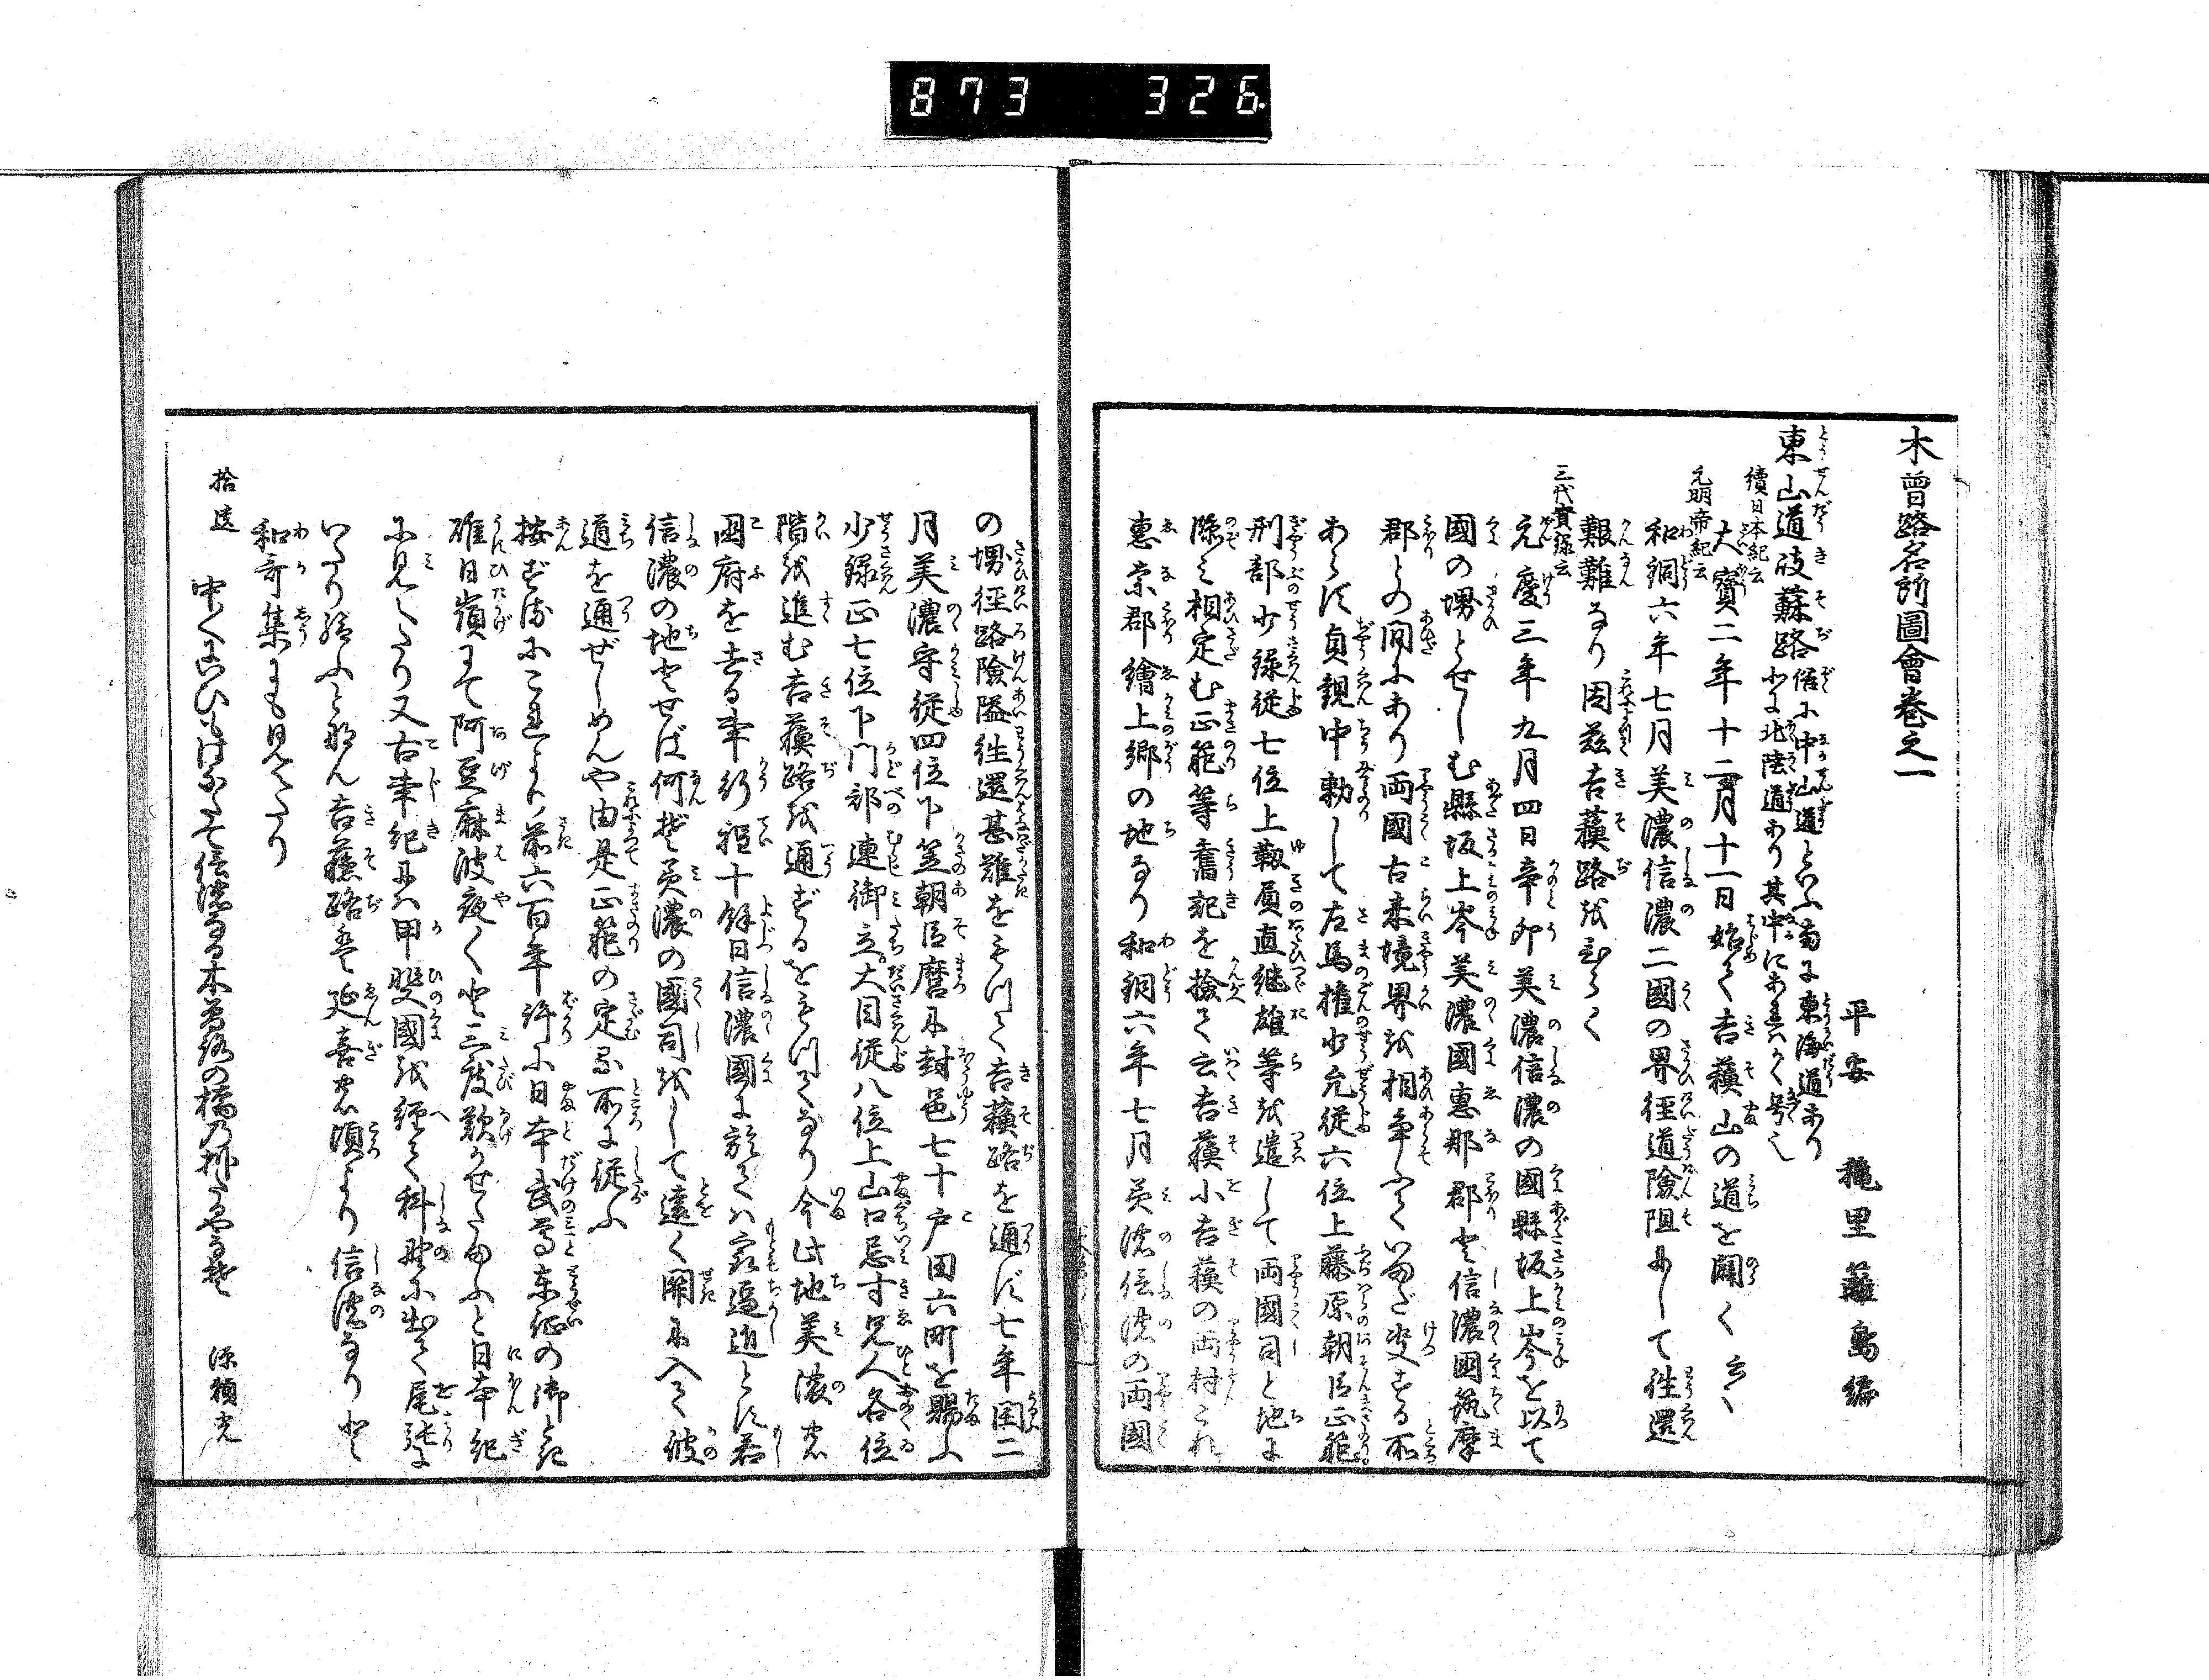 873 326
木曾路名所圖會巻之一
平安 穐里蘺島編
東山道岐蘇路 俗に中山道といふ南に東海道あり
北に北陸道あり其中にあればかく号く
續日本紀云
大寳二年十二月十一日始て吉蘓山の道を開く云々
元明帝紀云
和銅六年七月美濃信濃二國の界径道險阻にして徃還
艱難なり因茲吉蘓路を
三代實録云
元慶三年九月四日辛卯美濃信濃の國縣坂上岑を以て
國の堺とせしむ縣坂上岑美濃國惠那郡と信濃國筑摩
郡との間にあり両國古来境界を相争ふていまだ决する所
あらず貞觀中勅して左馬權少允從六位上藤原朝臣正範
刑部少録從七位上靱負直継雄等を遣して両國司と地に
臨て相定む正範等舊記を撿て云吉蘓小吉蘓の両村これ
惠奈郡繪上郷の地なり和銅六年七月美濃信濃の両國
の堺径路險隘徃還甚難をもつて吉蘓路を通ず七年閏二
月美濃守從四位下笠朝臣麿に封邑七十戸田六町を賜ふ
少録正七位下門部連御立大目從八位上山口忌寸兄人各位
階を進む吉蘓路を通ずるをもつてなり今此地美濃
國府を去る事行程十餘日信濃國に於ては最逼近とす若
信濃の地とせば何ぞ美濃の國司をして遠く関に入て彼
道を通ぜしめんや由是正範の定る所に從ふ
按ずるにこれより前六百年許に日本武尊東征の御とき
碓日嶺にて阿豆麻波夜くと三度歎かせたまふと日本紀
に見へたり又古事紀には甲斐國を經て科野に出て尾張に
いたり給ふとなん吉蘓路は延喜の頃より信濃なりと
和哥集にも見へたり
拾遺 中〳〵にいひもはなたで信濃なる木曽路の橋のかけたるやなぞ 源頼光